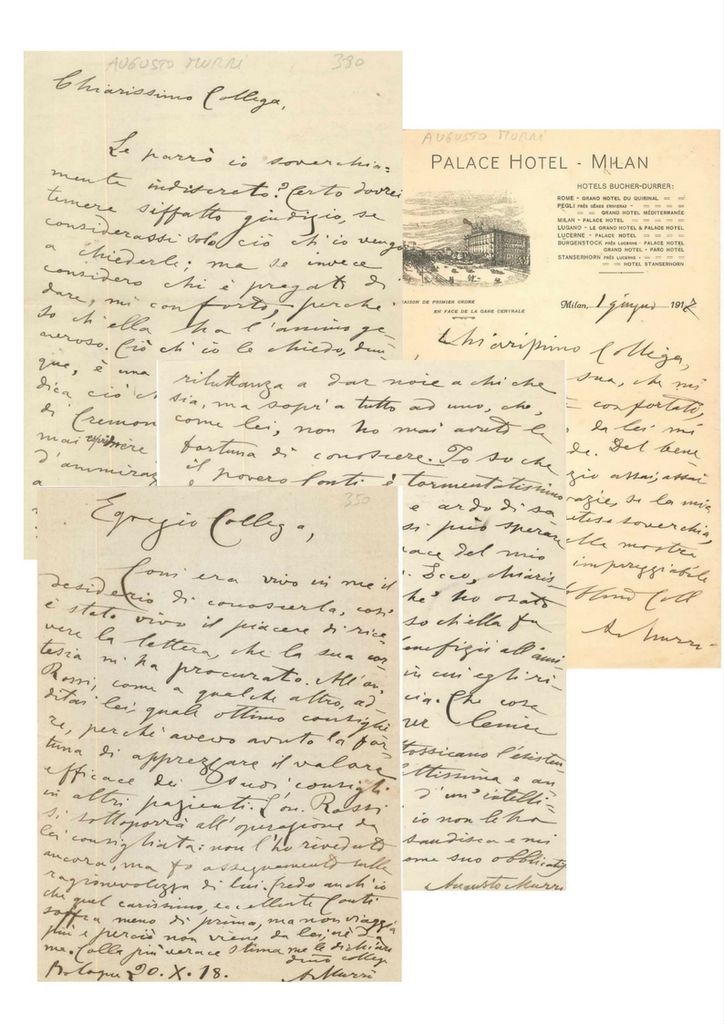 AUGUSTO MURRI 390
Chiarissimo Collega,
Le parrò io soverchia=
mente indiscreto? Certo dovrei
temere siffatto giudizio, se
considerassi solo ciò ch'io vengo
a chiederle; ma se invece
considero chi è pregato di
dare, mi conforto, perché
so ch'ella ha l'animo ge
neroso. Ciò ch'io le chiedo, dun
que, è una
dica ciò ch
di Cremon
mai
d'ammiraz
a
AUGUSTO MURRI
PALACE HOTEL - MILAN
HOTELS BUCHER-DURRER:
ROME - GRAND HOTEL DU QUIRINAL
PEGLI PRÈS GÊNES (RIVIERA) -
GRAND HOTEL MÉDITERRANÉE
MILAN - PALACE HOTEL
LUGANO - LE GRAND & PALACE HOTEL
LUCERNE - PALACE HOTEL
BURGENSTOCK PRÈS LUCERNE - PALACE HOTEL
GRAND HOTEL - PARC HOTEL
STANSERHORN PRÈS LUCERNE -
HOTEL STANSERHORN
MAISON DE PREMIER ORDRE
EN FACE DE LA GARE CENTRALE
Milan, 1 giugno 1917
Chiarissimo Collega,
sua, che mi
confortato,
da lei mi
de. Del bene
gio assai, assai
razie, se la mia
soverchia,
ella mostra
impreggiabile
Coll
A. Murri
riluttanza a dar noie a chi che
sia, ma sopra tutto ad uno, che,
come lei, non ho mai avuto la
fortuna di conoscere. Io so che
il povero Conti è tormentatissimo
e ardo di sa
si può sperare
ace del mio
. Ecco, chiaris
hé ho osato
so ch'ella fa
enefizii all'ami
in cui egli ri
cia. Che cosa
ver lenire
tossicano l'esisten
ettissima e an
d'un'intelli-
io non le ho
saudisca e mi
ome suo obbligatis
Augusto Murri
350
Egregio Collega,
Com'era vivo in me il
desiderio di conoscerla, così
è stato vivo il piacere di rice
vere la lettera, che la sua cor
tesia mi ha procurato. All'on.
Rossi, come a qualche altro, ad
ditai lei, quale ottimo consiglie
re, perché avevo avuto la for-
tuna di apprezzare il valore
efficace dei suoi consigli
in altri pazienti. L'on. Rossi
si sottoporrà all'operazione da
lei consigliata: non l'ho riveduto
ancora, ma fo assegnamento sulla
ragionevolezza di lui. Credo anch'io
che quel carissimo, eccellente Conti
soffra meno di prima, ma non viaggia
più e perciò non viene da lei, né da
me. Colla più verace stima me le dichiaro
collega
Bologna 20. X. 18. A. Murri